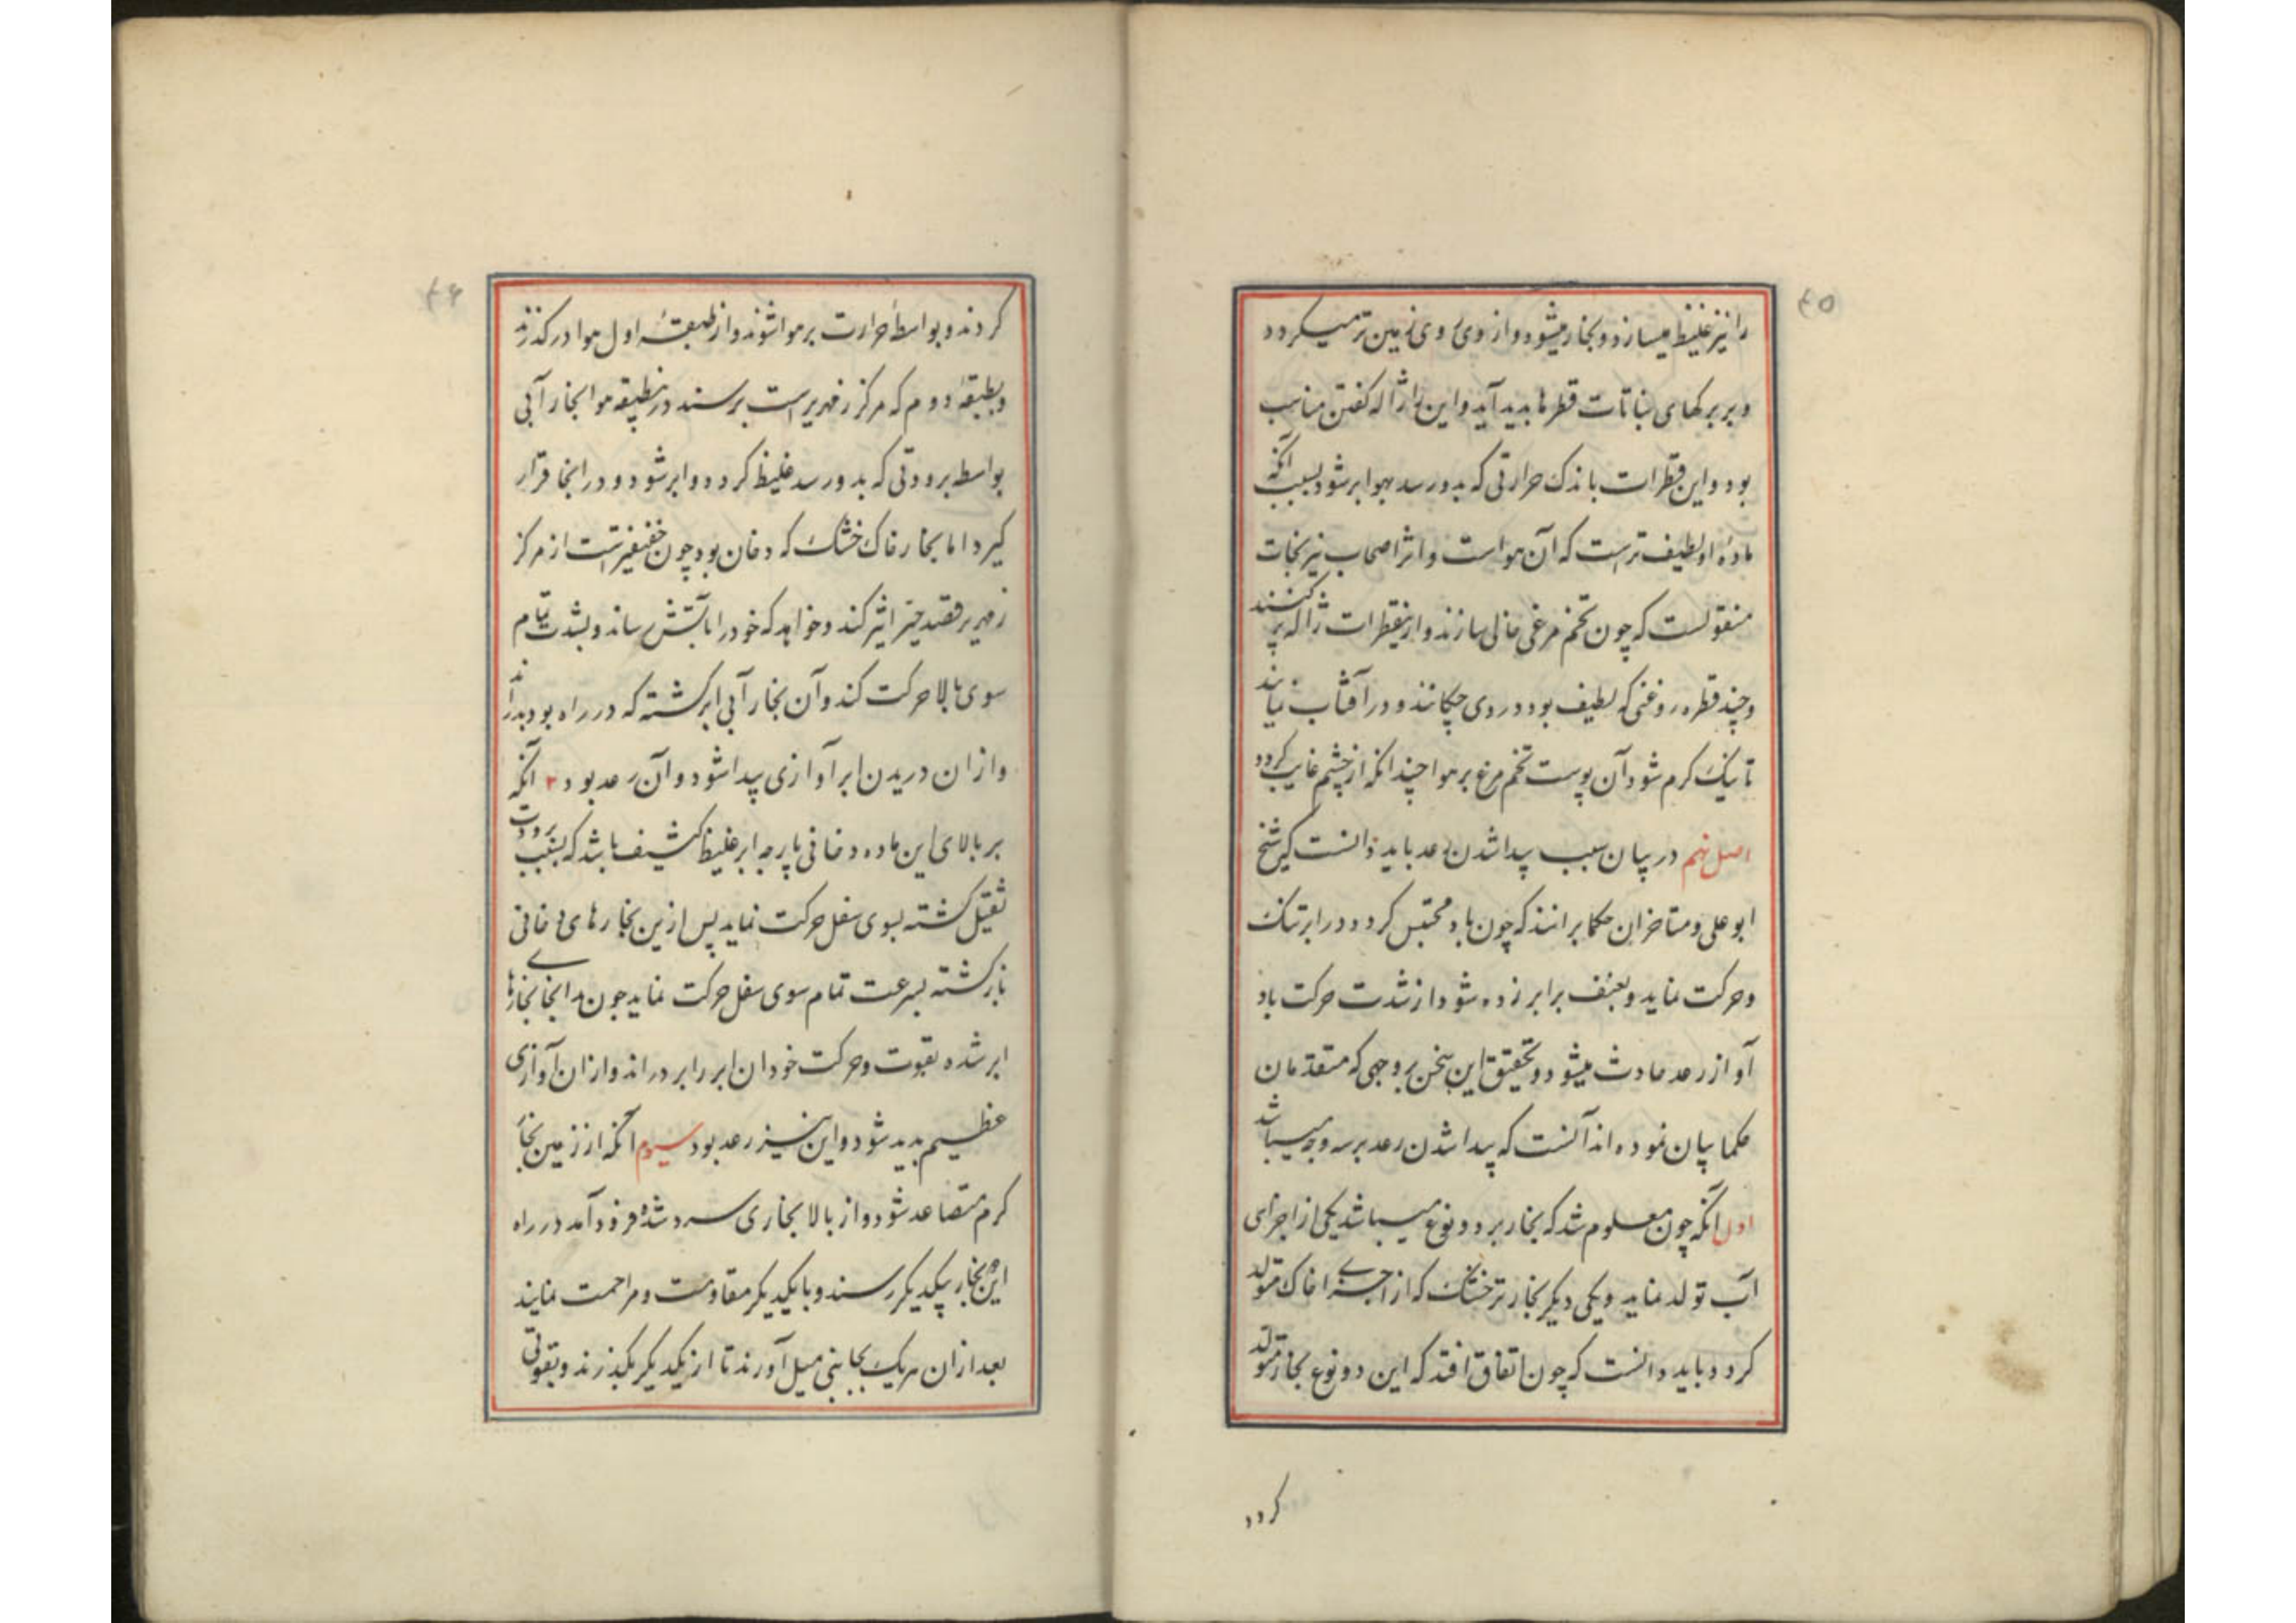 ۴۵
را نیز غلیظ میسازد و بخار میشود و از وی روی زمین تر میگردد
و بر برکهای نباتات قطرها بدید آید و این را ژاله کفتن مناسب
بود و این قطرات باندک حرارتی که بدو رسد بهوا بر شود بسبب آنکه
ماده او لطیف تر است که آن هواست و اثر اصحاب نیرنجات
منقولست که چون تخم مرغی خالی سازند و ازینقطرات ژاله پر کنند
و چند قطره روغنی که لطیف بود در وی چکانند و در آفتاب نهند
تا نیک کرم شود آن پوست تخم مرغ بر هوا چندانکه از چشم غایب کردد
اصل نهم در بیان سبب پیدا شدن رعد باید دانست که شیخ
ابو علی و متاخران حکما برانند که چون باد محتبس کردد در ابر تنک
و حرکت نماید و بعنف بر ابر زده شود از شدت حرکت باد
آواز رعد حادث میشود و تحقیق این سخن بر وجهی که متقدمان
حکما بیان نموده اند آنست که پیدا شدن رعد بر سه وجه میباشد
اول آنکه چون معلوم شد که بخار بر دو نوع میباشد یکی از اجزای
آب تولد نماید و یکی دیکر بخار تر خشک که از اجزای خاک متولد
کردد باید دانست که چون اتفاق افتد که این دو نوع بخار متولد
کردد
۴۶
کردند و بواسطهٔ حرارت بر هوا شوند و از طبقهٔ اول هوا درکذرند
و بطبقهٔ دوم که مرکز زمهریر است برسند درینطبقه هوا بخار آبی
بواسطه برودتی که بدو رسد غلیظ کردد و ابر شود و در انجا قرار
کیرد اما بخار خاک خشک که دخان بود چون خفیفترست از مرکز
زمهریر قصد حیز اثیر کند و خواهد که خود را بآتش رساند و بشدت تمام
سوی بالا حرکت کند و آن بخار آبی ابر کشته که در راه بود بدراند
و از ان دریدن ابر آوازی پیدا شود و آن رعد بود ۲ آنکه
بر بالای این ماده دخانی پارچه ابر غلیظ کثیف باشد که بسبب برودت
ثقیل کشته بسوی سفل حرکت نماید پس ازین بخارهای دخانی
باز کشته بسرعت تمام سوی سفل حرکت نماید چون در انجا بخارهای
ابر شده بقوت و حرکت خود ان ابر را بر دراند و از ان آوازی
عظیم بدید شود و این نیز رعد بود سیوم آنکه از زمین بخار
کرم متصاعد شود و از بالا بخاری سرد شده فرود آمد در راه
این دو بخار بیکدیکر رسند و با یکدیکر مقاومت و مزاحمت نمایند
بعد از ان هر یک بجانبی میل آورند تا از یکدیکر بکذرند و بقوتی